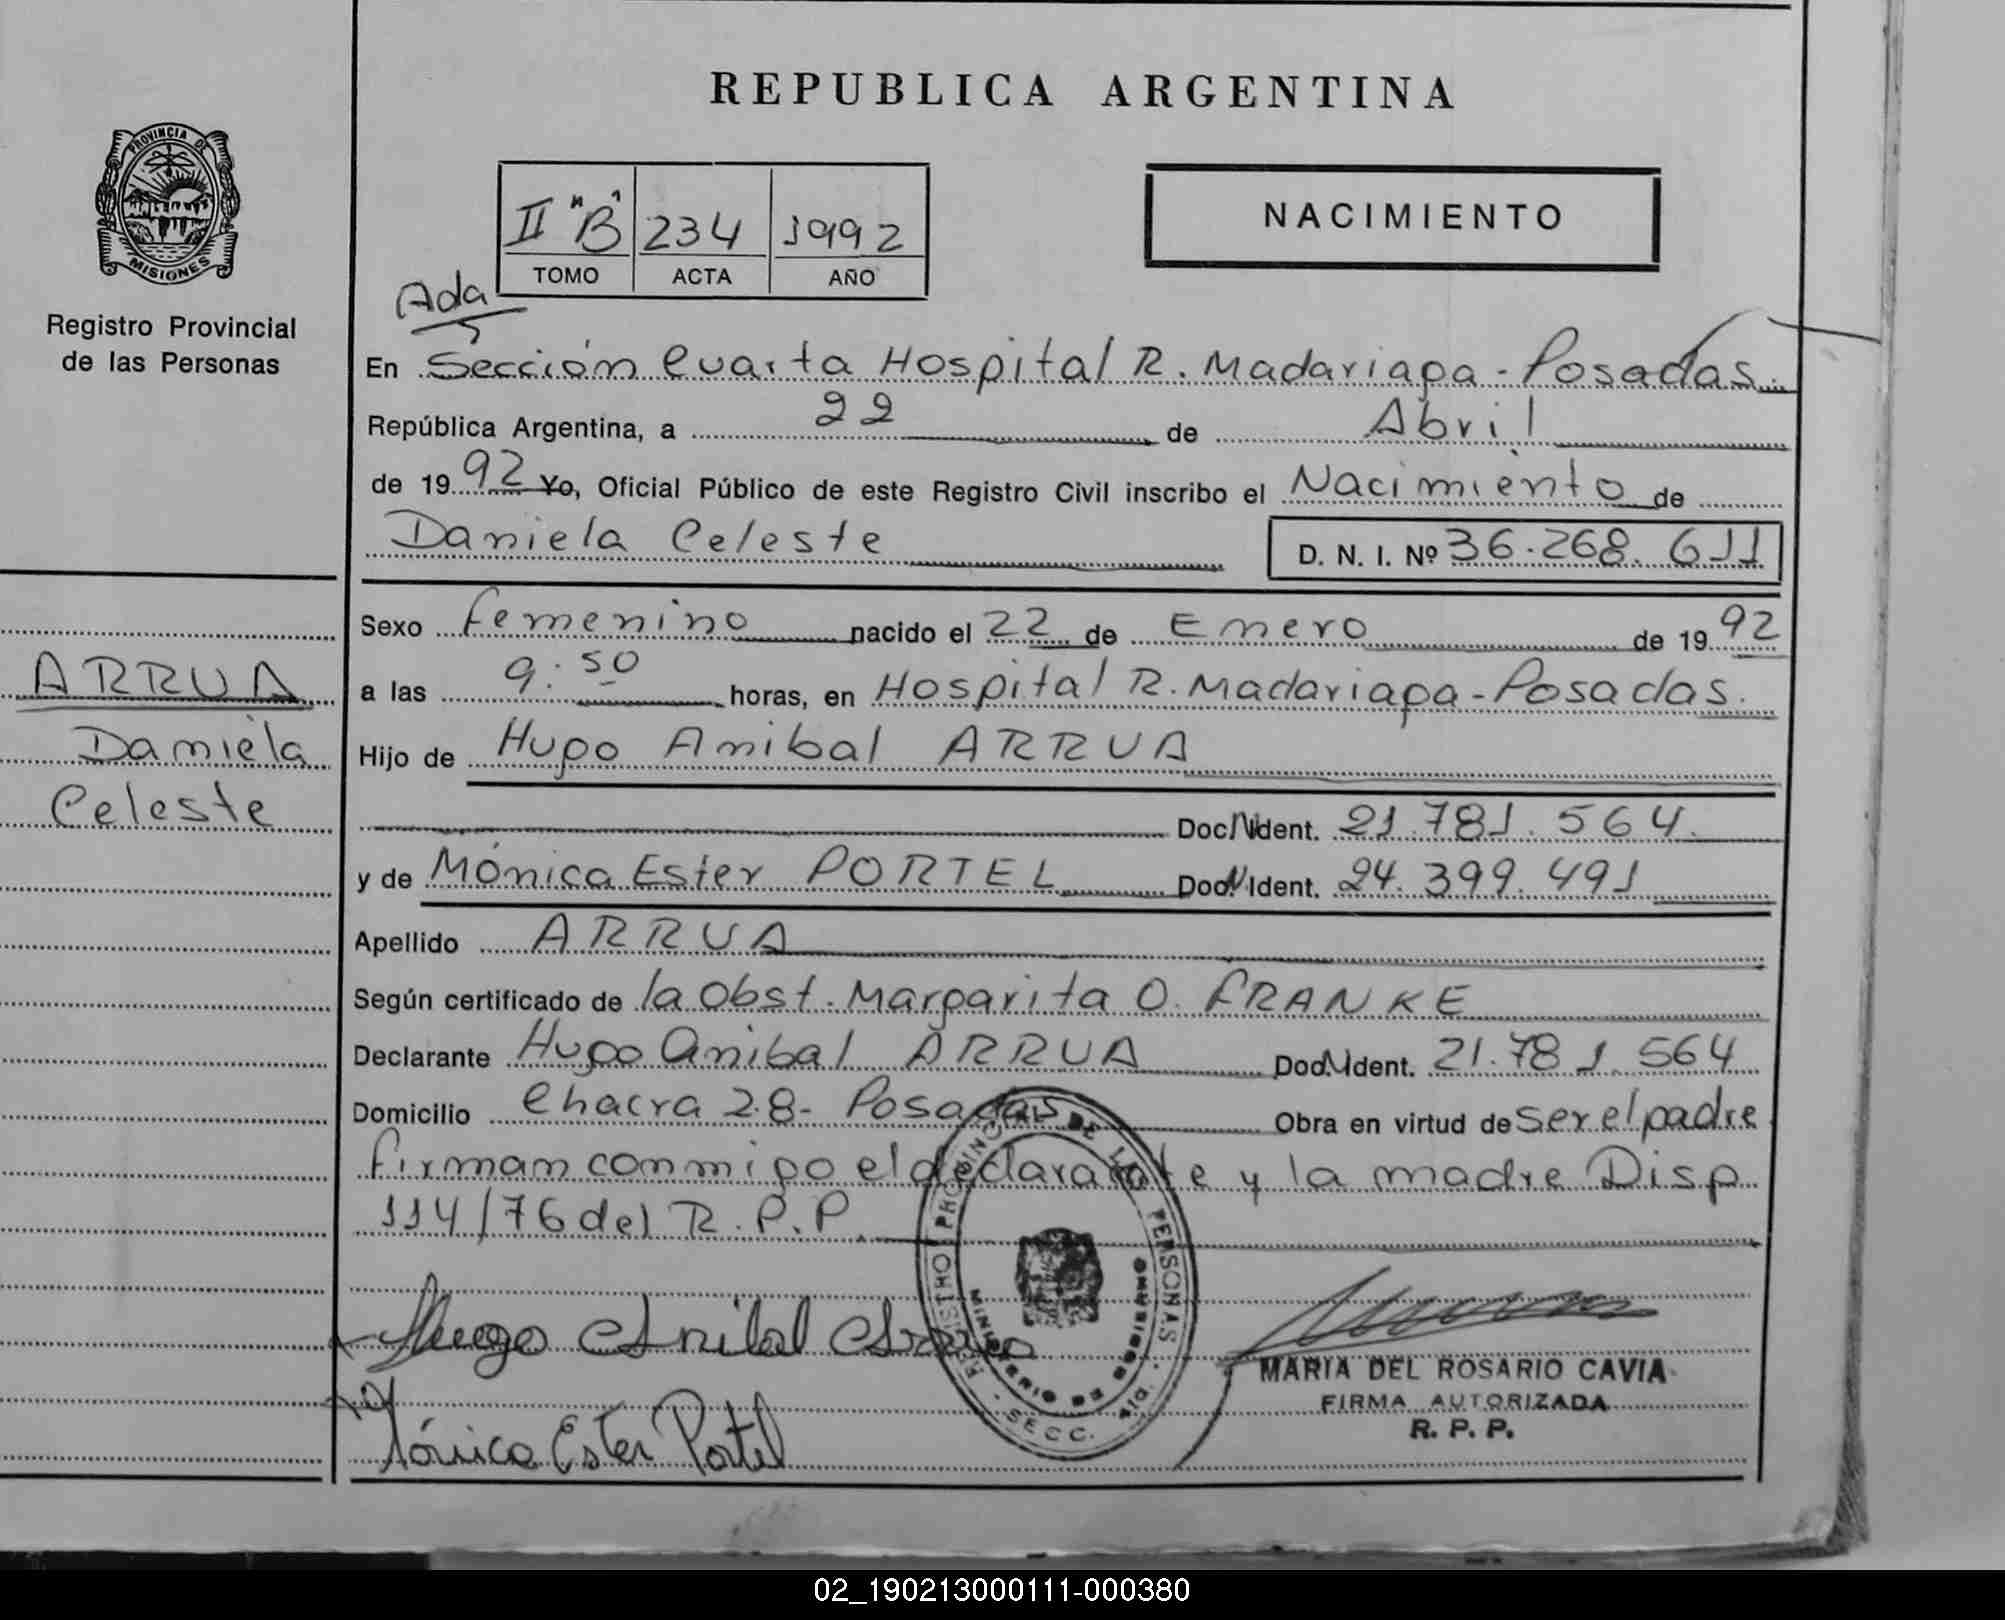 REPUBLICA ARGENTINA
PROVINCIA DE
MISIONES
Registro Provincial
de las Personas
II "B" 234 1992
TOMO ACTA AÑO
NACIMIENTO
Ada
En Sección Cuarta Hospital R. Madariaga - Posadas
República Argentina, a 22 de Abril
de 1992 Yo, Oficial Público de este Registro Civil inscribo el Nacimiento de
Daniela Celeste D. N. I. Nº 36.268.611
Sexo Femenino nacido el 22 de Enero de 1992
ARRUA
Daniela
Celeste
a las 9:50 horas, en Hospital R. Madariaga - Posadas.
Hijo de Hugo Anibal ARRUA
Doc. N. Ident. 21.781.564.
y de Mónica Ester PORTEL Doc. N. Ident. 24.399.491
Apellido ARRUA
Según certificado de la Obst. Margarita O. FRANKE
Declarante Hugo Anibal ARRUA Doc. N. Ident. 21.781.564
Domicilio Chacra 28 - Posadas Obra en virtud de ser el padre
firman conmigo el declarante y la madre Disp
114/76 del R.P.P.
REGISTRO PROVINCIAL DE LAS PERSONAS
MINISTERIO DE GOBIERNO
SECC.
Hugo Anibal Arrua
Mónica Ester Portel
MARIA DEL ROSARIO CAVIA
FIRMA AUTORIZADA
R. P. P.
02_190213000111-000380